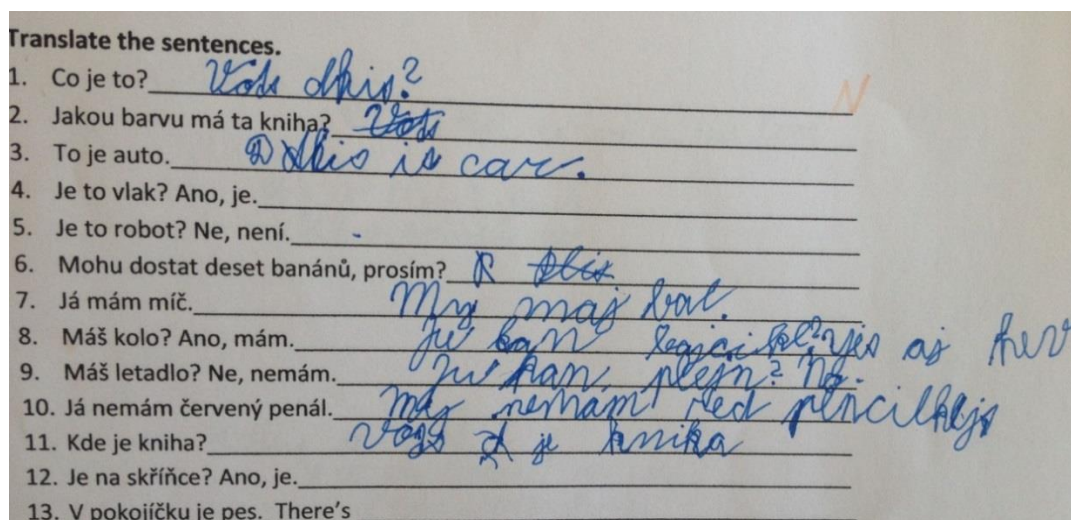 Translate the sentences.
1. Co je to? Vots dhis? N
2. Jakou barvu má ta kniha? Vots
3. To je auto. dhis is car.
4. Je to vlak? Ano, je.
5. Je to robot? Ne, není.
6. Mohu dostat deset banánů, prosím? plis
7. Já mám míč. My maj bal.
8. Máš kolo? Ano, mám. Ju kan yes aj hev
9. Máš letadlo? Ne, nemám. Ju kan plejn? No.
10. Já nemám červený penál. maj nemám red pencilkejs
11. Kde je kniha? je knika
12. Je na skříňce? Ano, je.
13. V pokojíčku je pes. There's